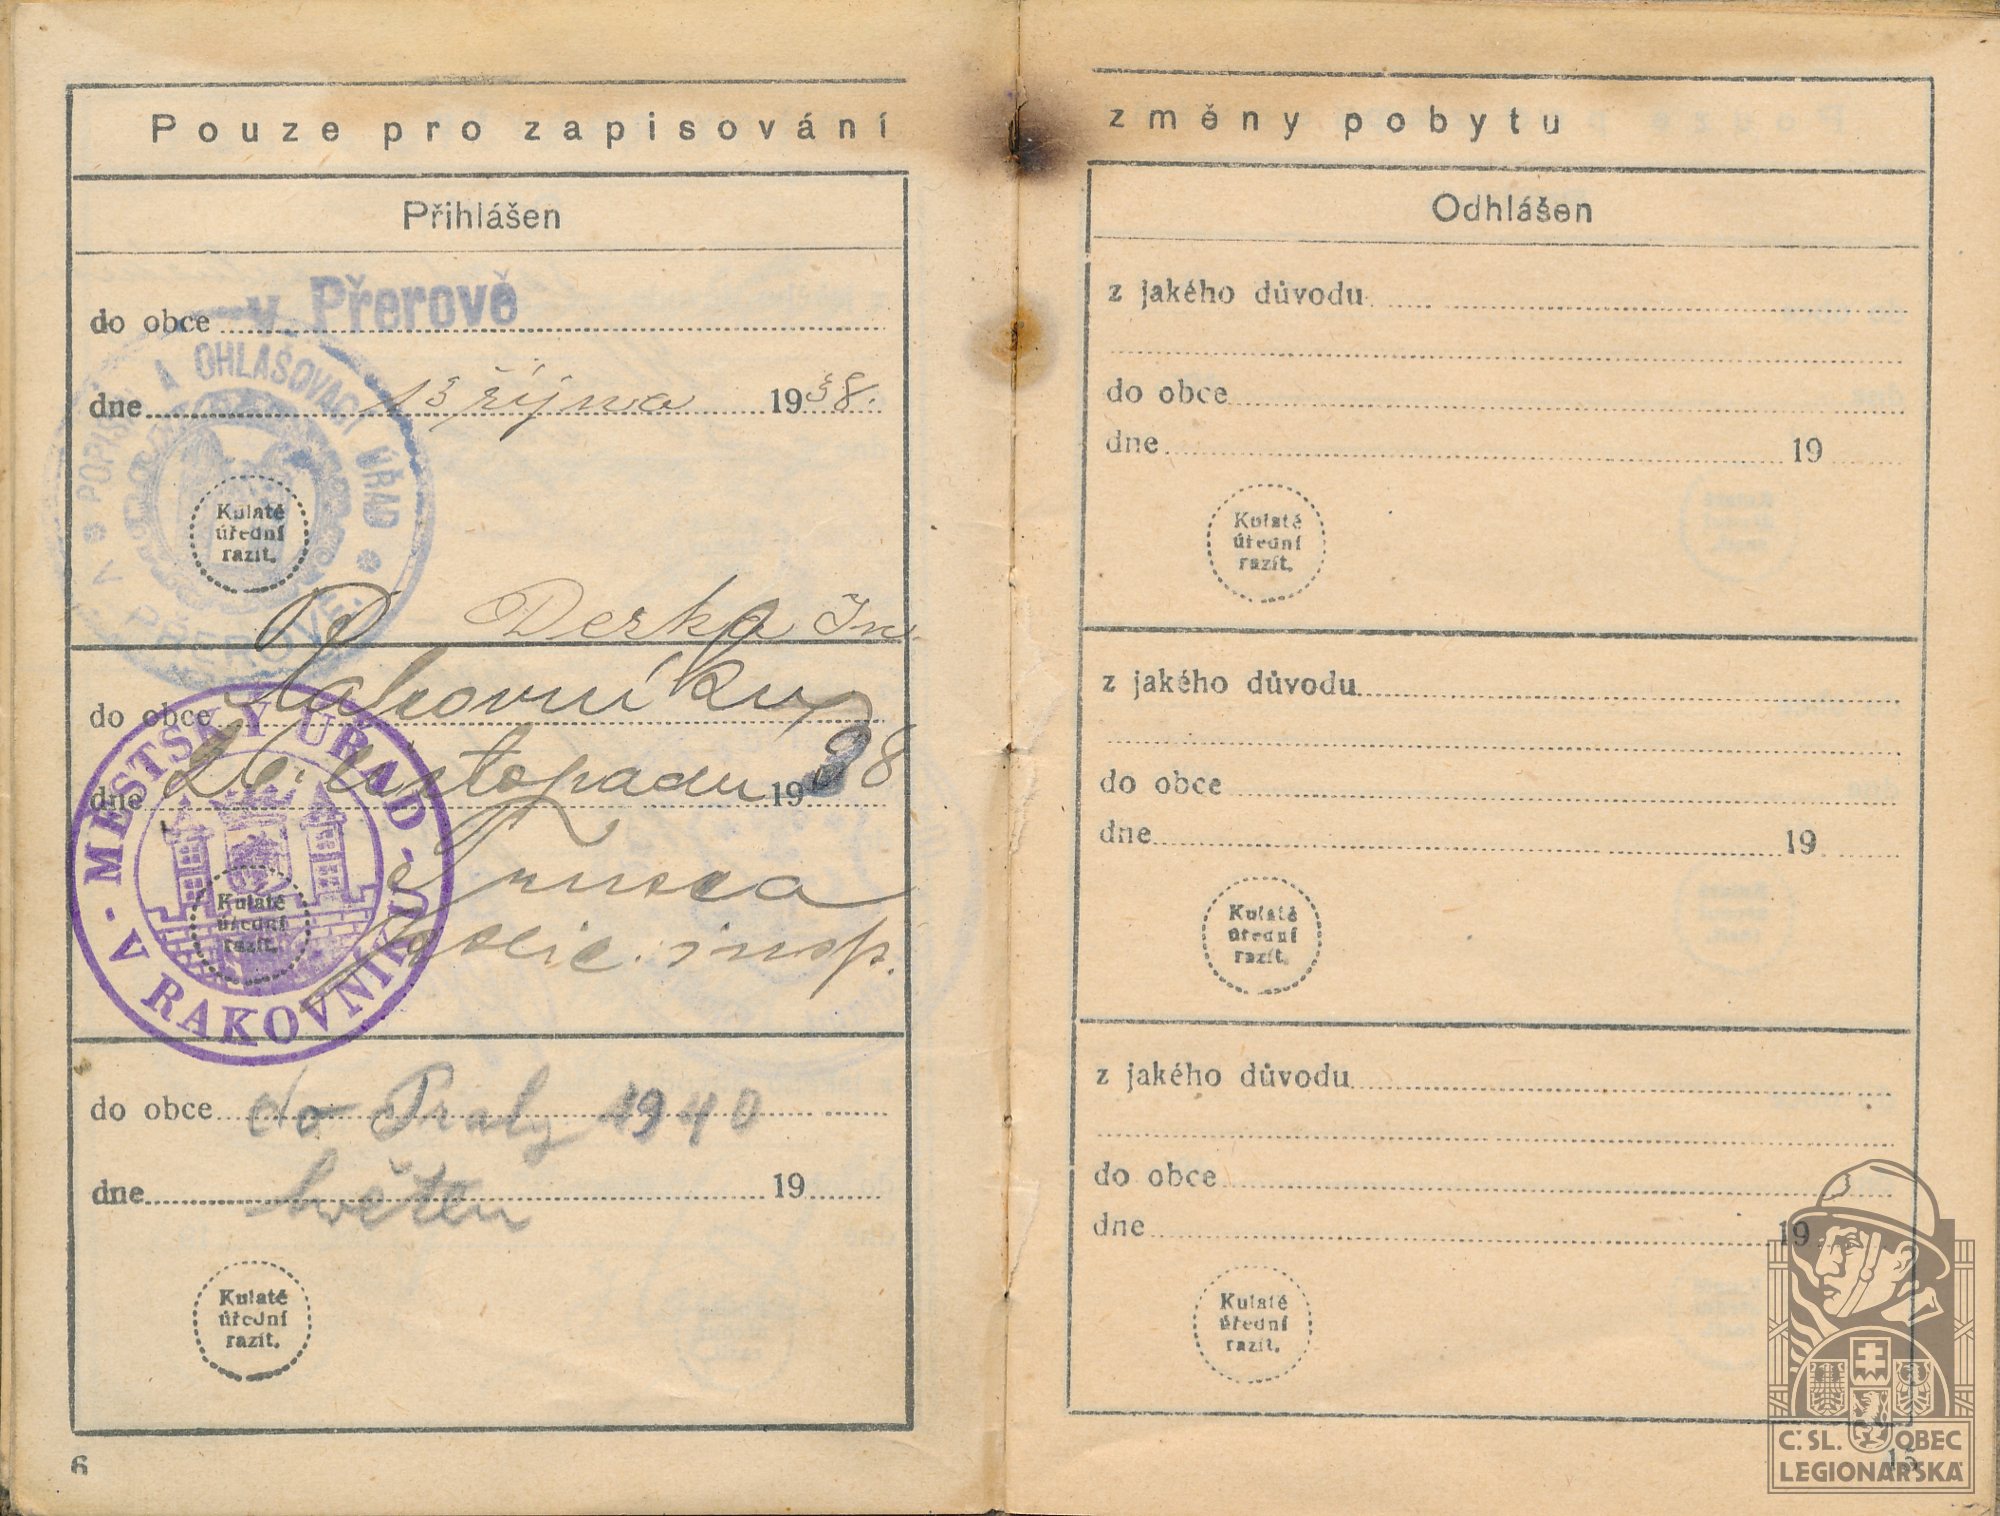 Pouze pro zapisování
Přihlášen
do obce v Přerově
dne 13 října 1938.
POPISNÝ A OHLAŠOVACÍ ÚŘAD
V PŘEROVĚ
Kulaté
úřední
razít.
Derka
do obce Rakovníku
dne listopadu 1938
MĚSTSKÝ ÚŘAD
V RAKOVNÍKU
Kulaté
úřední
razít.
polic. insp.
do obce do Prahy 1940
dne květen 19
Kulaté
úřední
razít.
6
změny pobytu
Odhlášen
z jakého důvodu
do obce
dne 19
Kulaté
úřední
razít.
z jakého důvodu
do obce
dne 19
Kulaté
úřední
razít.
z jakého důvodu
do obce
dne 19
Kulaté
úřední
razít.
Č. SL. OBEC
LEGIONÁŘSKÁ